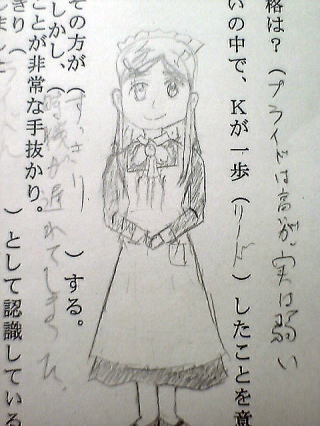 格は？（プライドは高いが、実は弱い
いの中で、Kが一歩（リード）したことを意
その方が（すっきり）する。
しかし、（時機が遅れてしまうひ、
ことが非常な手抜かり。
きり（）として認識している
しました